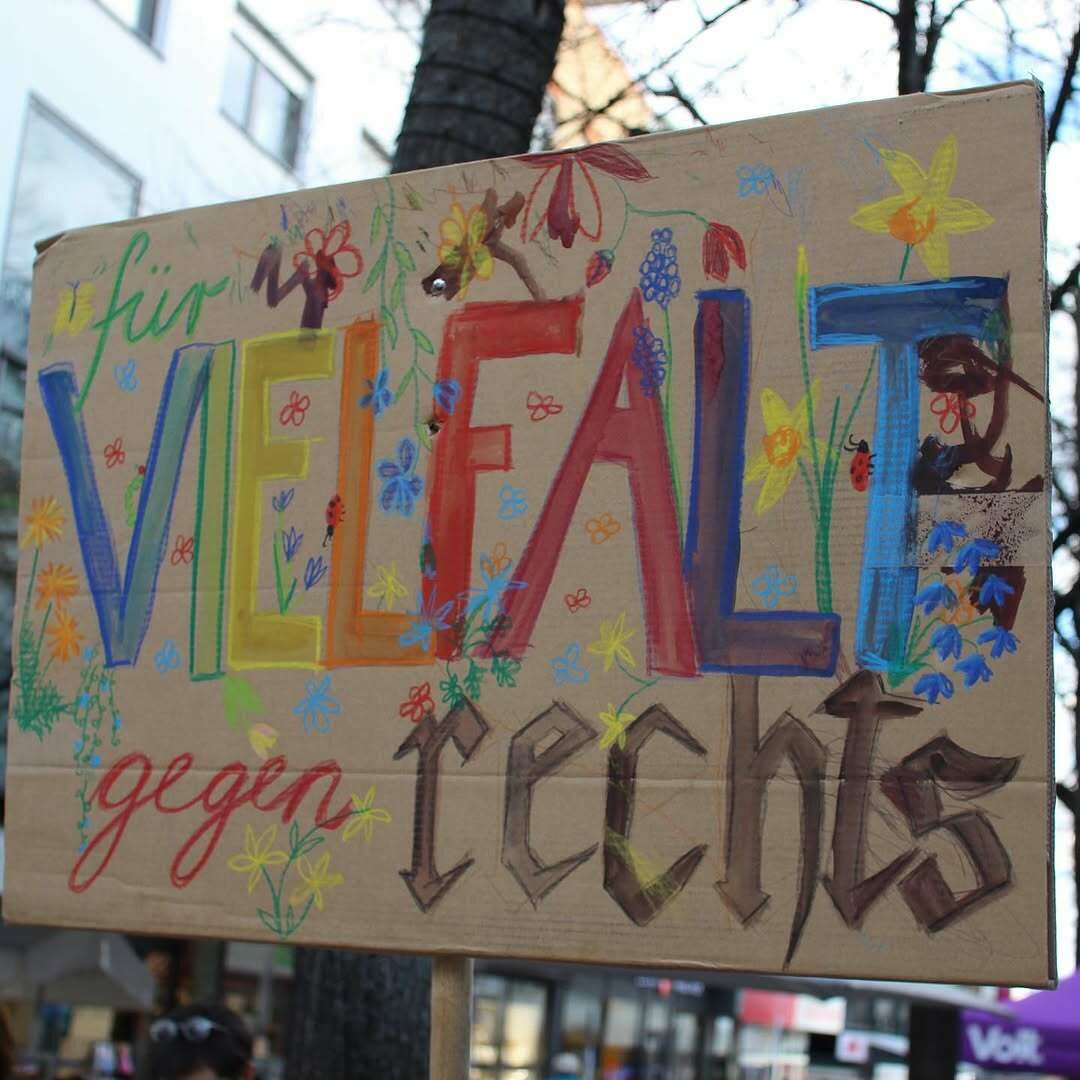 für
VIELFALT
gegen rechts
Volt